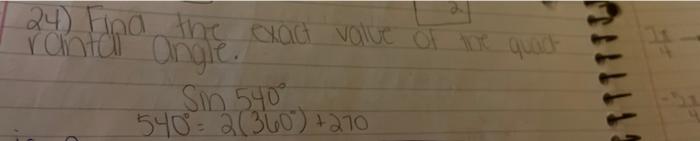 2
24) Find the exact value of the quad-
rantal angle.
Sin 540°
540° = 2(360°) + 270
7π
4
-5π
4